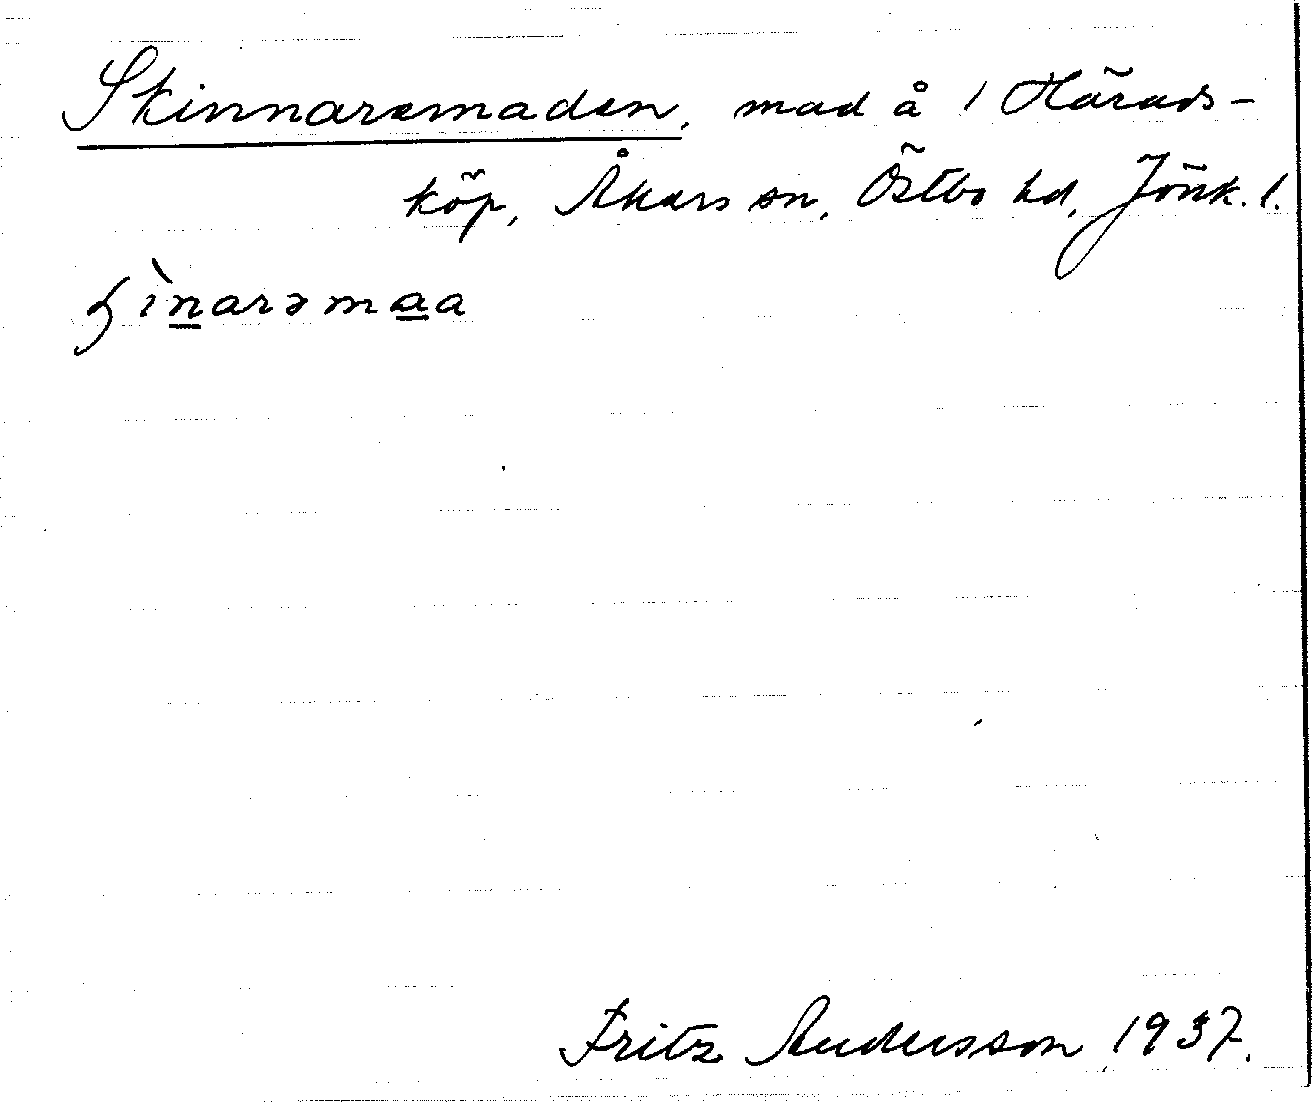 Skinnaremaden, mad å 1 Härads-
köp, Åkers sn, Östbo hd, Jönk. l.
ʂìnarəmaa
Fritz Andersson 1937.